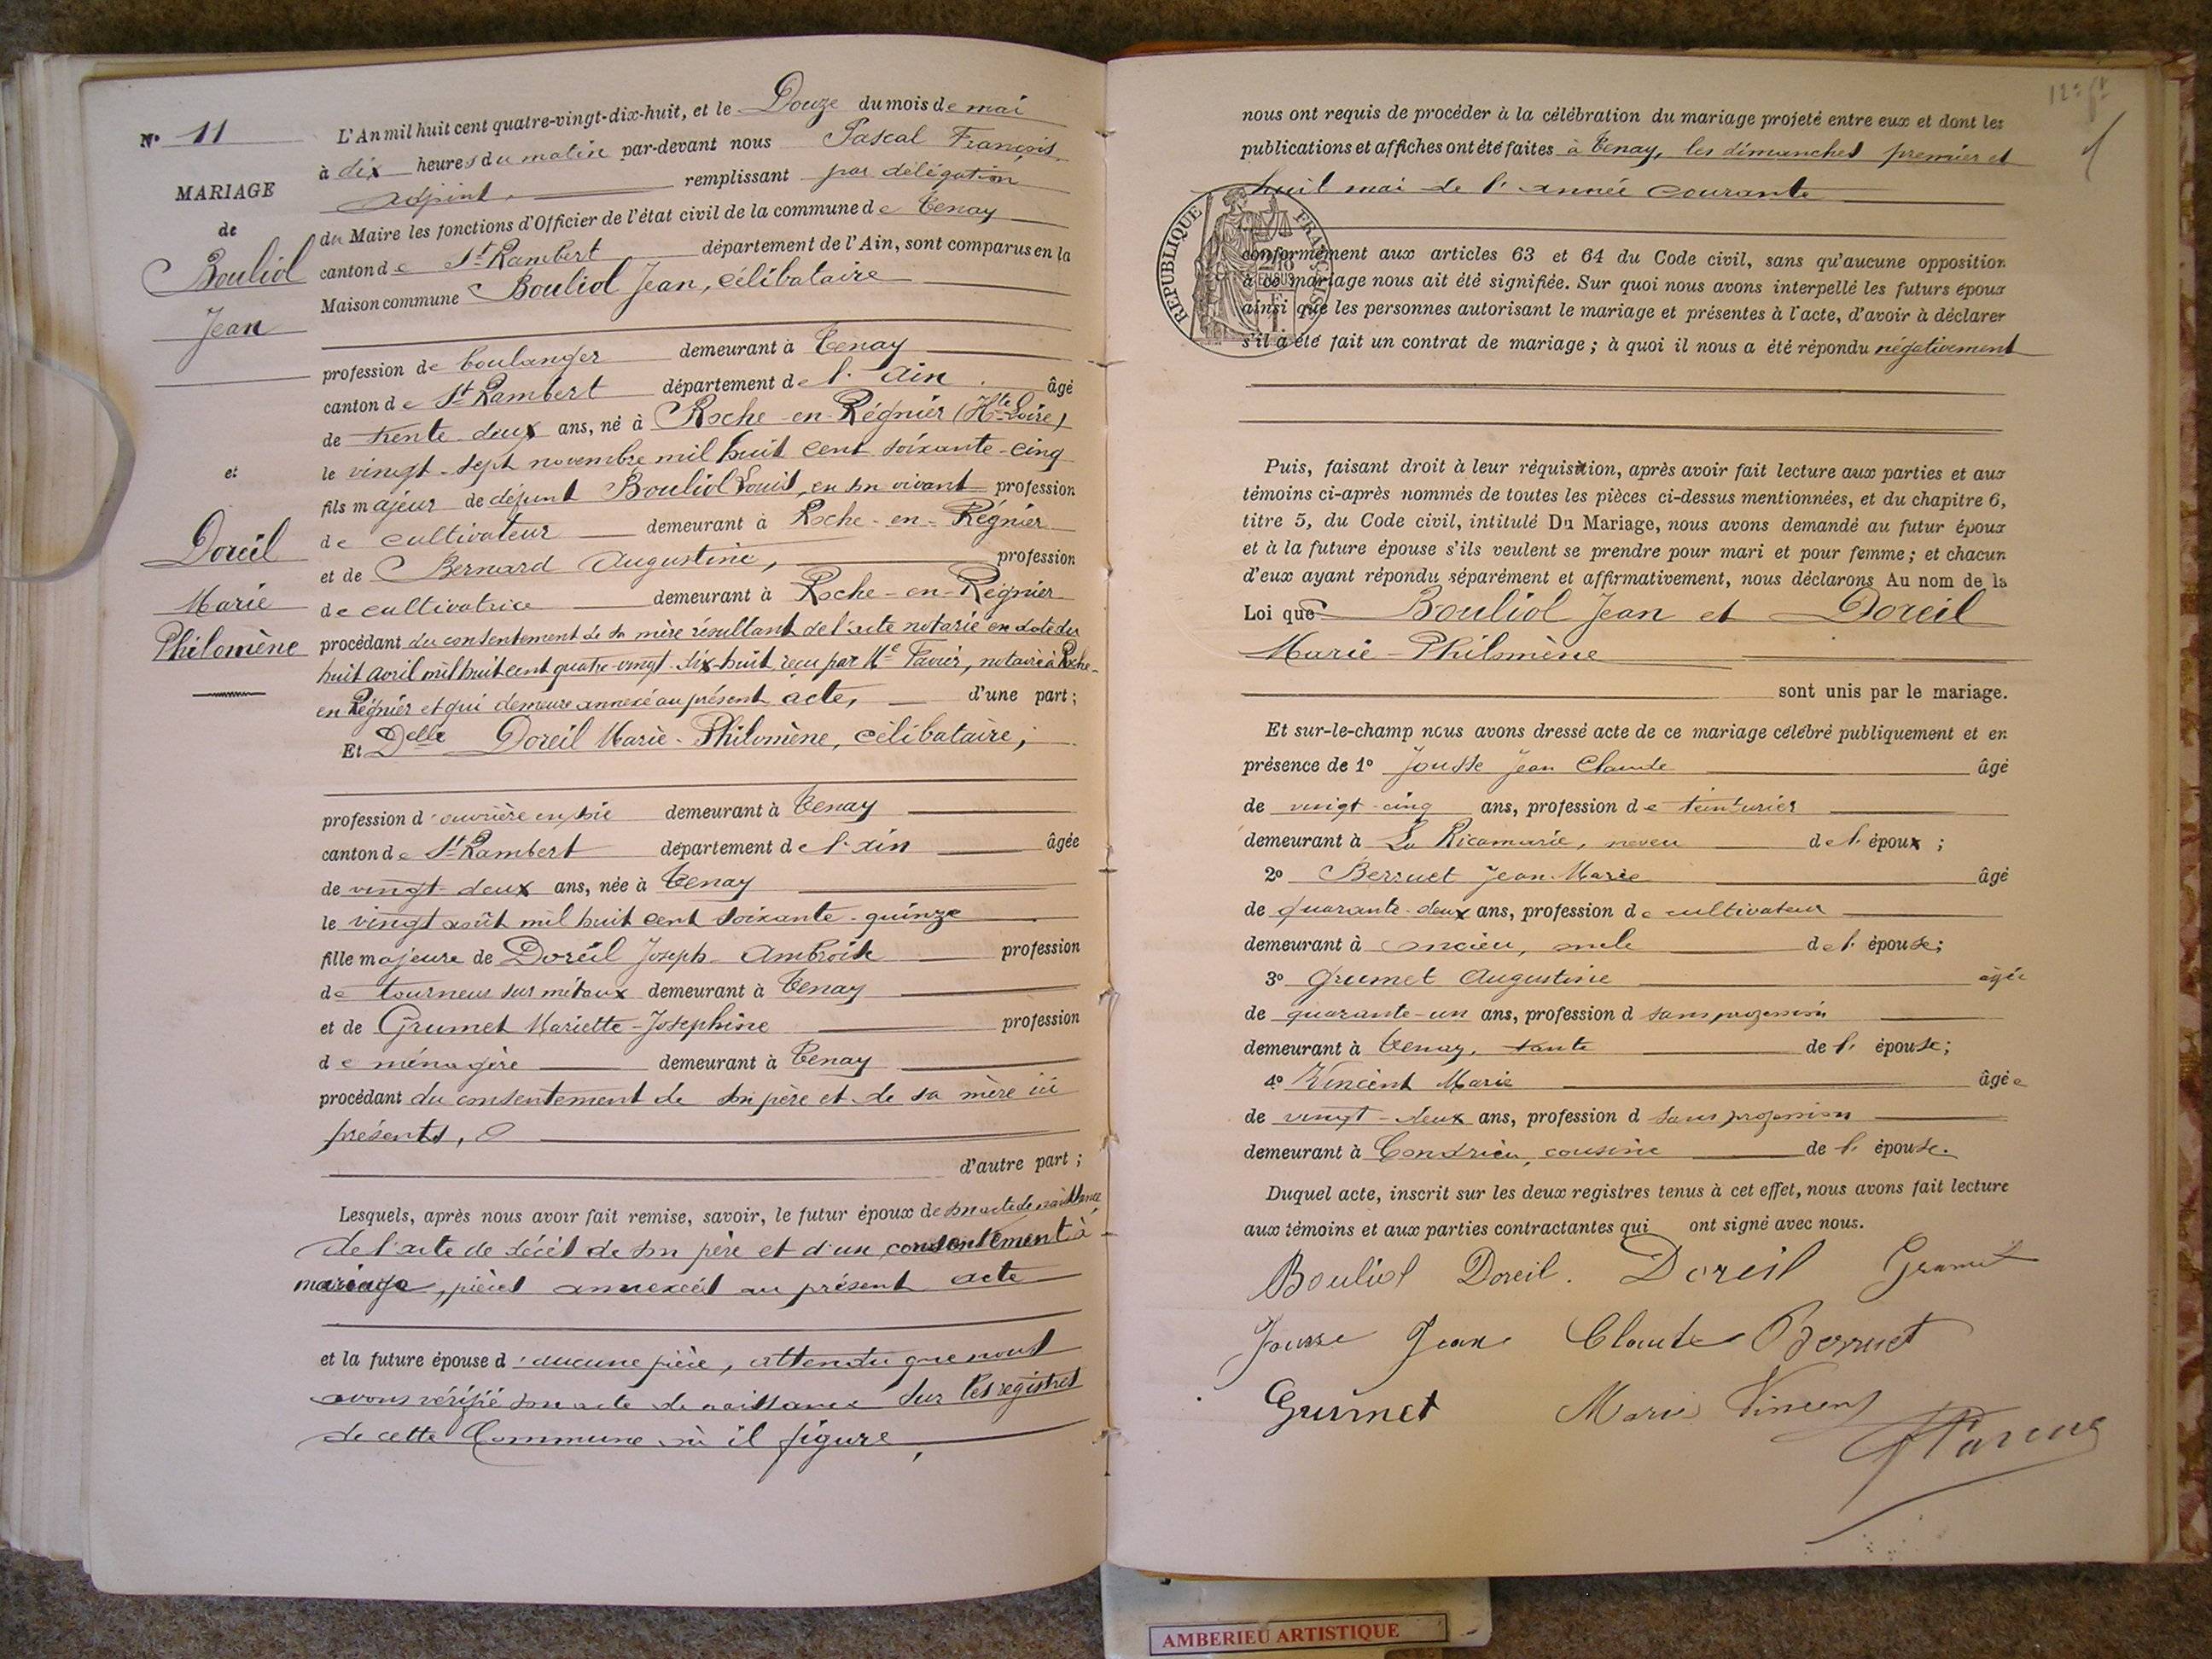 N° 11
MARIAGE
de
Bouliol
Jean
et
Doreil
Marie
Philomène
L'An mil huit cent quatre-vingt-dix-huit, et le Douze du mois de mai
à dix heures du matin par-devant nous Pascal François,
adjoint, remplissant par délégation
du Maire les fonctions d'Officier de l'état civil de la commune de Tenay
canton de St Rambert département de l'Ain, sont comparus en la
Maison commune Bouliol Jean, célibataire
profession de boulanger demeurant à Tenay
canton de St Rambert département de l'Ain âgé
de trente-deux ans, né à Roche-en-Régnier (Hte Loire)
le vingt-sept novembre mil huit cent soixante-cinq
fils majeur de défunt Bouliol Louis, en son vivant profession
de cultivateur demeurant à Roche-en-Régnier
et de Bernard Augustine, profession
de cultivatrice demeurant à Roche-en-Régnier
procédant du consentement de sa mère résultant de l'acte notarié en date du
huit avril mil huit cent quatre-vingt-dix-huit, reçu par Me Favier, notaire à Roche-
en Régnier et qui demeure annexé au présent acte, d'une part ;
Et Delle Doreil Marie-Philomène, célibataire,
profession d'ouvrière en soie demeurant à Tenay
canton de St Rambert département de l'ain âgée
de vingt-deux ans, née à Tenay
le vingt août mil huit cent soixante-quinze
fille majeure de Doreil Joseph-Ambroise profession
de tourneur sur métaux demeurant à Tenay
et de Grumet Mariette-Josephine profession
de ménagère demeurant à Tenay
procédant du consentement de son père et de sa mère ici
présents,
d'autre part ;
Lesquels, après nous avoir fait remise, savoir, le futur époux de son acte de naissance,
de l'acte de décès de son père et d'un consentement à
mariage, pièces annexées au présent acte
et la future épouse d'aucune pièce, attendu que nous
avons vérifié son acte de naissance sur les registres
de cette Commune où il figure,
nous ont requis de procéder à la célébration du mariage projeté entre eux et dont les
publications et affiches ont été faites à Tenay, les dimanches premier et
huit mai de l'année courante
RÉPUBLIQUE FRANÇAISE
conformément aux articles 63 et 64 du Code civil, sans qu'aucune opposition
à ce mariage nous ait été signifiée. Sur quoi nous avons interpellé les futurs époux
ainsi que les personnes autorisant le mariage et présentes à l'acte, d'avoir à déclarer
s'il a été fait un contrat de mariage ; à quoi il nous a été répondu négativement
Puis, faisant droit à leur réquisition, après avoir fait lecture aux parties et aux
témoins ci-après nommés de toutes les pièces ci-dessus mentionnées, et du chapitre 6,
titre 5, du Code civil, intitulé Du Mariage, nous avons demandé au futur époux
et à la future épouse s'ils veulent se prendre pour mari et pour femme ; et chacun
d'eux ayant répondu séparément et affirmativement, nous déclarons Au nom de la
Loi que Bouliol Jean et Doreil
Marie-Philomène
sont unis par le mariage.
Et sur-le-champ nous avons dressé acte de ce mariage célébré publiquement et en
présence de 1° Jousse Jean Claude âgé
de vingt-cinq ans, profession de teinturier
demeurant à La Ricamarie, neveu de l'époux ;
2° Berruet Jean-Marie âgé
de quarante-deux ans, profession de cultivateur
demeurant à oncle de l'épouse ;
3° Grumet Augustine âgée
de quarante-un ans, profession d sans profession
demeurant à Tenay, tante de l'épouse ;
4° Vincent Marie âgée
de vingt-deux ans, profession d sans profession
demeurant à Condrieu, cousine de l'épouse.
Duquel acte, inscrit sur les deux registres tenus à cet effet, nous avons fait lecture
aux témoins et aux parties contractantes qui ont signé avec nous.
Bouliol Doreil. Doreil Grumet
Jousse Jean Claude Berruet
Grumet Marie Vincent
AMBERIEU ARTISTIQUE